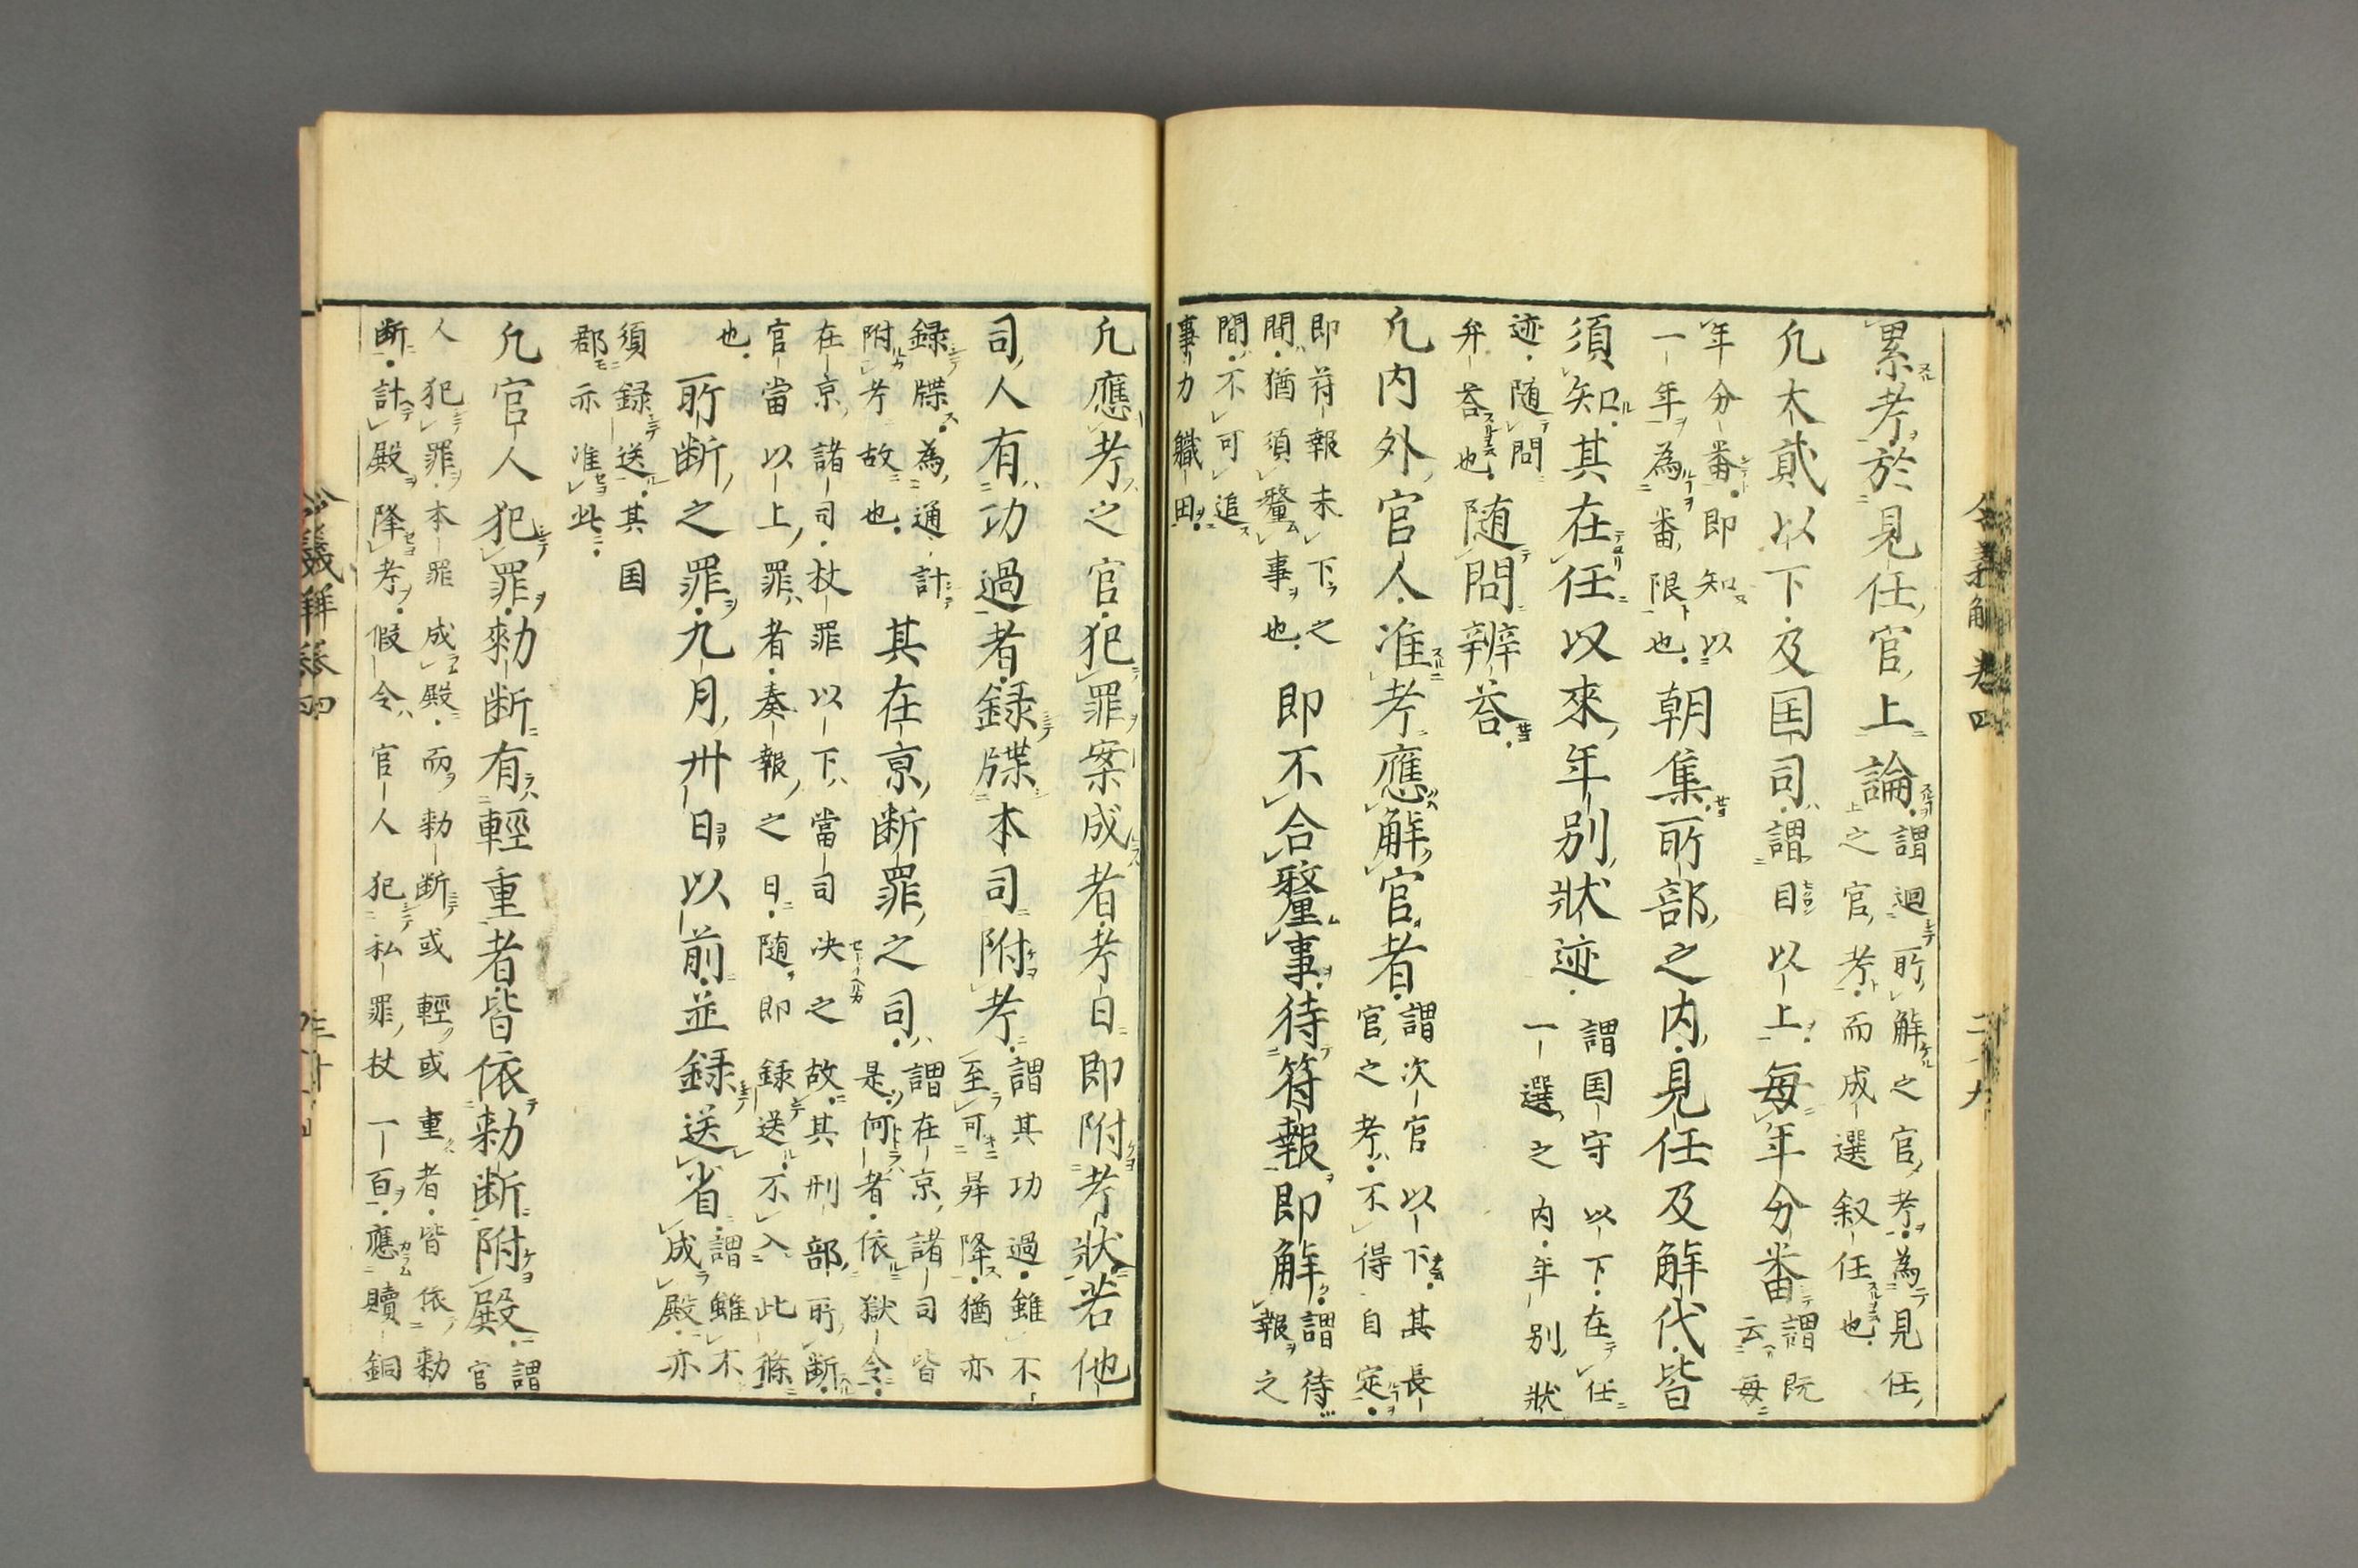 累考於見任官上論謂迴所解之官考為見任
之官考而成選叙任也
凢太貳以下及国司謂目以上毎年分番謂既
云毎
年分番即知以
一年為番限也朝集所部之内見任及解代皆
須知其在任以來年別狀迹謂国守以下在任
一選之内年別狀
迹随問
弁荅也随問辨荅
凢内外官人准考應解官者謂次官以下其長
官之考不得自定
即苻報未下之
間猶須釐事也即不合釐事待符報即解謂待
報之
間不可追
事力軄田
令義解卷四
二十九
凢應考之官犯罪案成者考日即附考狀若他
司人有功過者録牒本司附考謂其功過雖不
至可昇降猶亦
録牒為通計
附考故也其在京断罪之司謂在京諸司皆
是何者依獄令
在京諸司杖罪以下當司决之故其刑部所断
官當以上罪者奏報之日随即録送不入此條
也所断之罪九月卅日以前並録送省謂雖不
成殿亦
須録送其国
郡亦准此
凢官人犯罪勑断有輕重者皆依勑断附殿謂
官
人犯罪本罪成殿而勑断或輕或重者皆依勑
断計殿降考假令官人犯私罪杖一百應贖銅